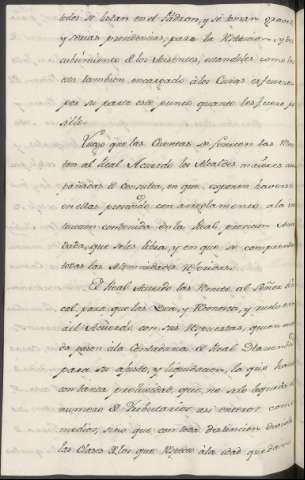 tores se botan en el Padron, y se toman graves
y serias providencias, para la Retencion, y des-
cubrimiento de los Ausentes, estandoles como les
está tambien encargado à los Curas esfuercen
por su parte este punto quanto les fuere po-
sible.
Luego que las Cuentas se finicen las Remi-
ten al Real Acuerdo los Alcaldes mayores acom-
pañadas de Consulta, en que exponen haverse
en ellas procedido con arreglamento à la Yns-
truccion contenida en la Real, provicion Acor-
dada, que se les libra, y en que se comprenden
todas las
El Real Acuerdo las Remite al Señor Fis-
cal para que las Vea, y Reconosca, y vuelven
al Acuerdo con sus Repuestas, que man-
da pasen à la Contaduria de Real Hacienda
para su ajuste, y liquidacion, la que hace
con tanta prolixidad, que no solo liquida el
numero de Tributarios, asi enteros, como
medios, sino que con toda distincion
las Clases de los que Respecto à la edad quedaron